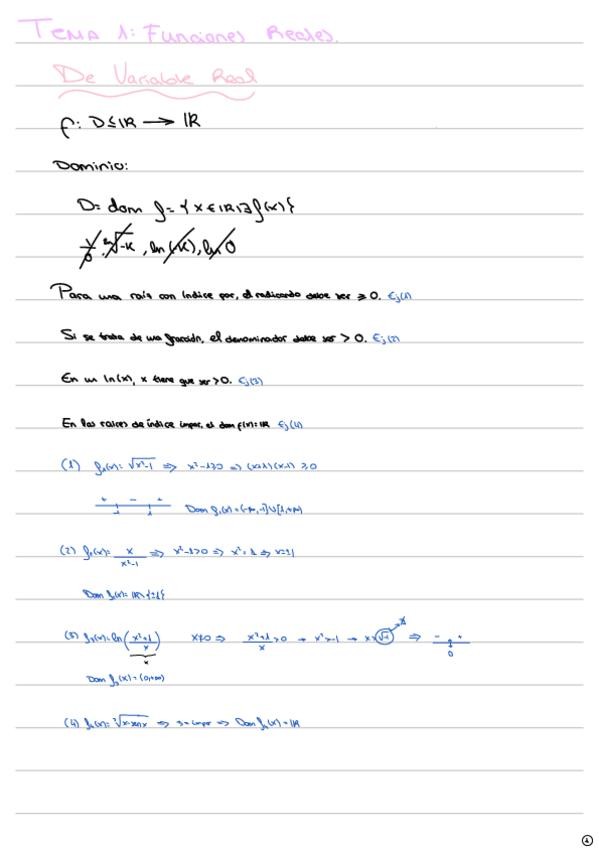 TEMA 1: Funciones Reales.
De Variable Real
f: D⊆ℝ → ℝ
Dominio:
D= dom f = {x∈ℝ/∃f(x)}
, ln(-x), ln 0
Para una raíz con índice par, el radicando debe ser ≥ 0. Ej(1)
Si se trata de una fracción, el denominador debe ser > 0. Ej(2)
En un ln(x), x tiene que ser >0. Ej(3)
En las raíces de índice impar, el dom f(x)=ℝ Ej(4)
(1) f₁(x)= √x²-1 ⇒ x²-1≥0 ⇒ (x+1)(x-1) ≥0
+ - +
-1 1 Dom f₁(x)=(-∞,-1]∪[1,+∞)
(2) f₂(x)= x/x²-1 ⇒ x²-1>0 ⇒ x²=1 ⇒ x=±1
Dom f₂(x)= ℝ\{±1}
(3) f₃(x)=ln(x²+1/x) x≠0 ⇒ x²+1/x >0 → x²>-1 → x>√-1 ⇒ - +
x 0
Dom f₃(x)=(0,+∞)
(4) f₄(x)= ³√x-senx ⇒ 3=impar ⇒ Dom f₄(x)=ℝ
1